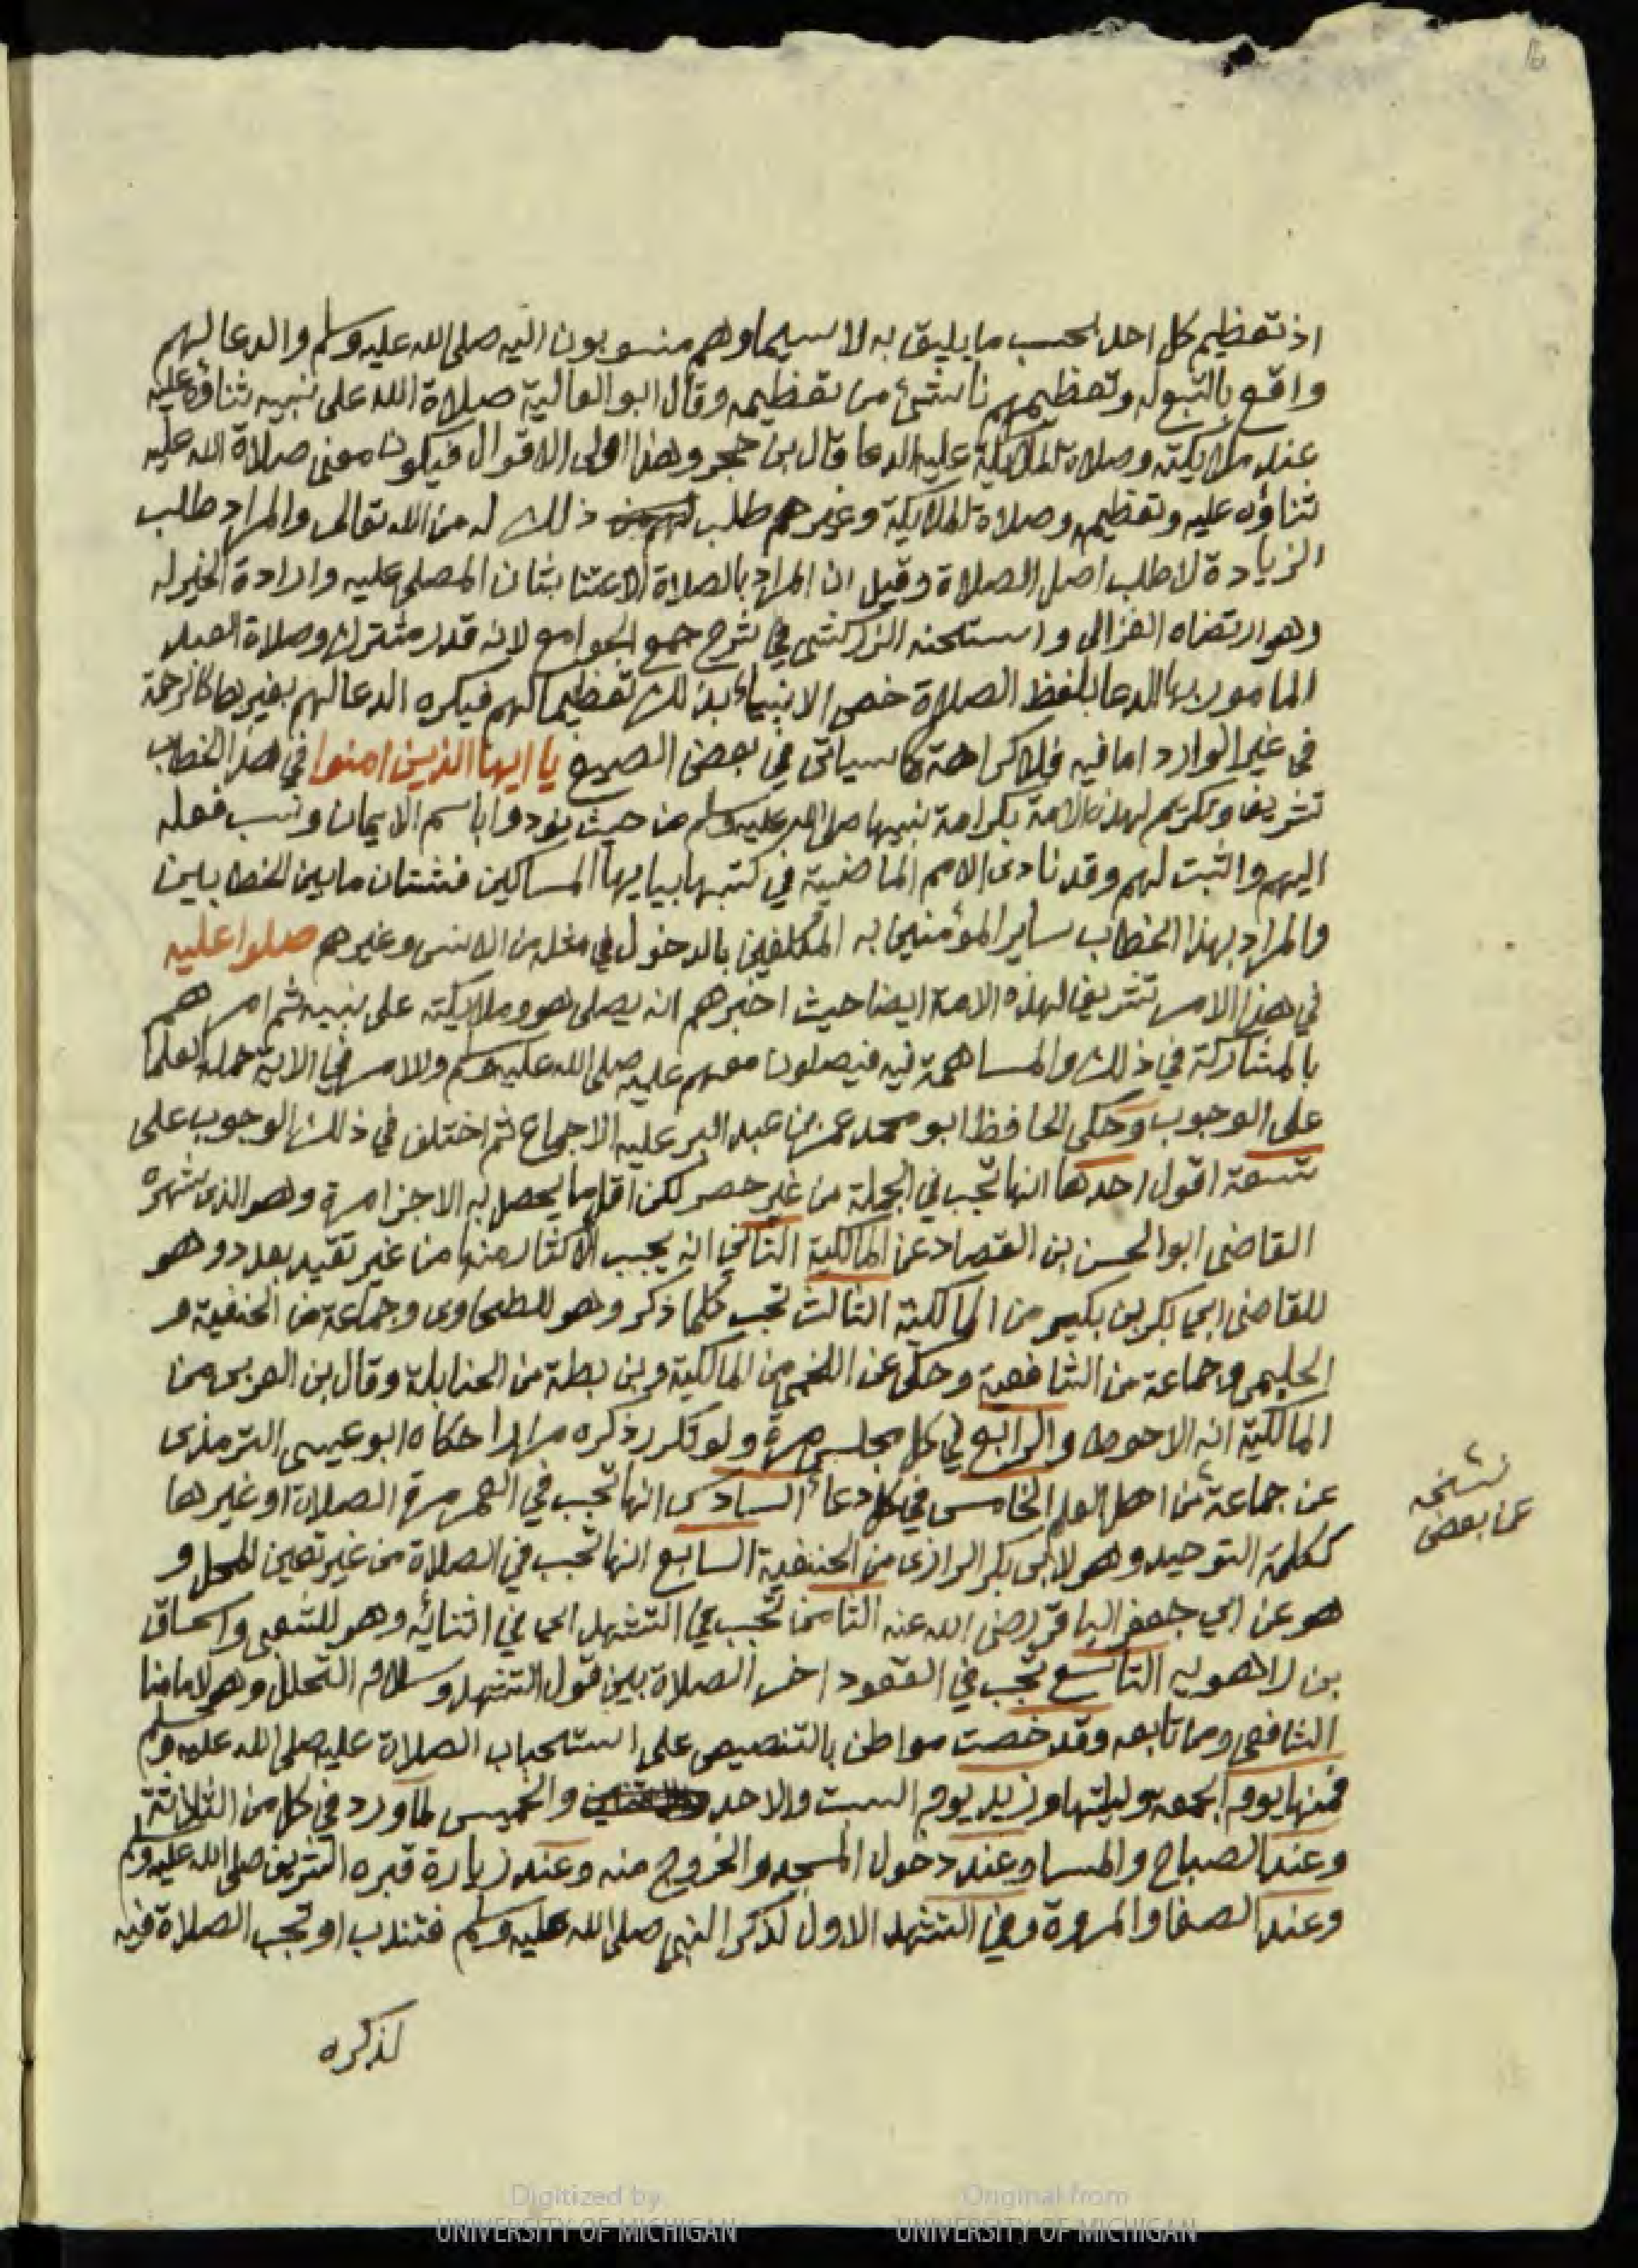 16
اذ تعظيم كل احد بحسب ما يليق به لا سيما وهم منسوبون اليه صلى الله عليه وسلم والدعا لهم
واقع بالتبع له وتعظيمهم ناشئ من تعظيمه وقال ابو العالية صلاة الله على نبيه ثناؤه عليه
عند ملايكته وصلاة الملايكة عليه الدعا قال بن حجر وهذا اولى الاقوال فيكون معنى صلاة الله عليه
ثناؤه عليه وتعظيمه وصلاة الملايكة وغيرهم طلب ذلك له من الله تعالى والمراد طلب
الزيادة لا طلب اصل الصلاة وقيل ان المراد بالصلاة الاعتنا بشان المصلى عليه وارادة الخير له
وهو ارتضاه الغزالى واستحسنه الزركشى في شرح جمع الجوامع لانه قدر مشترك وصلاة العبد
المامور بها الدعا بلفظ الصلاة خص الانبياء بذلك تعظيما لهم فيكره الدعا لهم بغيرها كالرحمة
فى غير الوارد اما فيه فلا كراهة كما سياتى في بعض الصيغ يا ايها الذين امنوا في هذا الخطاب
تشريف وتكريم لهذه الامة بكرامة نبيها صلى الله عليه وسلم من حيث نودوا باسم الايمان ونسب فعله
اليهم واثبت لهم وقد نادى الامم الماضية في كتبها بيايها المساكين فشتان ما بين الخطابين
والمراد بهذا الخطاب ساير المؤمنين به المكلفين بالدخول في من الانس وغيرهم صلوا عليه
في هذا الامر تشريف لهذه الامة ايضا حيث اخبرهم انه يصلى هو وملايكته على نبيه ثم امرهم
بالمشاركة في ذلك والمساهمة فيه فيصلون معهم عليه صلى الله عليه وسلم والامر في الاية حمله العلما
على الوجوب وحكى الحافظ ابو محمد عمر بن عبد البر عليه الاجماع ثم اختلف في ذلك الوجوب على
تسعة اقول احدها انها تجب في الجملة من غير حصر لكن اقل ما يحصل به الاجزا مرة وهو الذى شهره
القاضى ابو الحسن بن القصاد عن المالكية الثاني انه يجب الاكثار منها من غير تقيد بعدد وهو
للقاضى ابي بكر بن بكير من المالكية الثالث تجب كلما ذكر وهو للطحاوى وجماعة من الحنفية و
الحليمى وجماعة من الشافعية وحكى عن اللخمى من المالكية وبن بطة من الحنابلة وقال بن العربى من
المالكية انه الاحوط والرابع في كل مجلس مرة ولو تكرر ذكره مرارا حكاه ابو عيسى الترمذى
عن جماعة من اهل العلم الخامس في كل دعا السادس انها تجب في العمر مرة الصلاة او غيرها
نسخه
عن بعض
ككلمة التوحيد وهو لابى بكر الرازى من الحنفية السابع انها تجب في الصلاة من غير تعين المحل و
هو عن ابي جعفر الباقر رضى الله عنه الثامن تجب في التشهد اى في اثنائه وهو للشعبى واسحاق
بن راهويه التاسع تجب في القعود اخر الصلاة بين قول التشهد وسلام التحلل وهو لامامنا
الشافعى ومن تابعه وقد خصت مواطن بالتنصيص على استحباب الصلاة عليه صلى الله عليه وسلم
فمنها يوم الجمعة وليلتها وزيد يوم السبت والاحد والخميس لما ورد في كل من الثلاثة
وعند الصباح والمسا وعند دخول المسجد والخروج منه وعند زيارة قبره الشريف صلى الله عليه وسلم
وعند الصفا والمروة وفي التشهد الاول لذكر النبى صلى الله عليه وسلم فتندب او تجب الصلاة فيه
لذكره
Digitized by
UNIVERSITY OF MICHIGAN
Original from
UNIVERSITY OF MICHIGAN